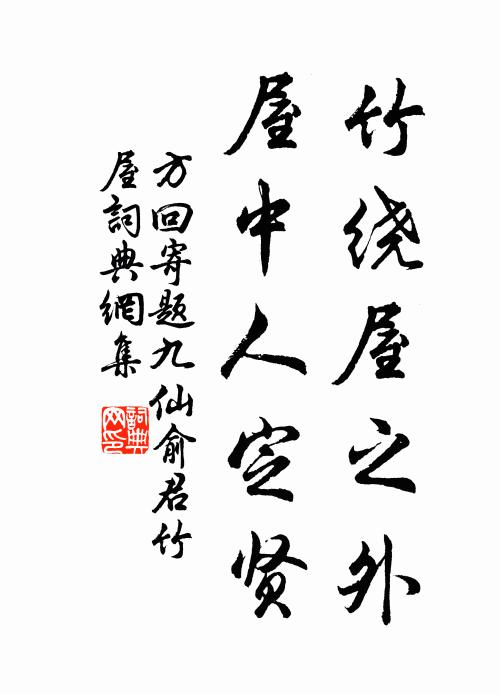 竹绕屋之外
屋中人定贤
方回寄题九仙俞君竹
屋詞典網集
詞典网印